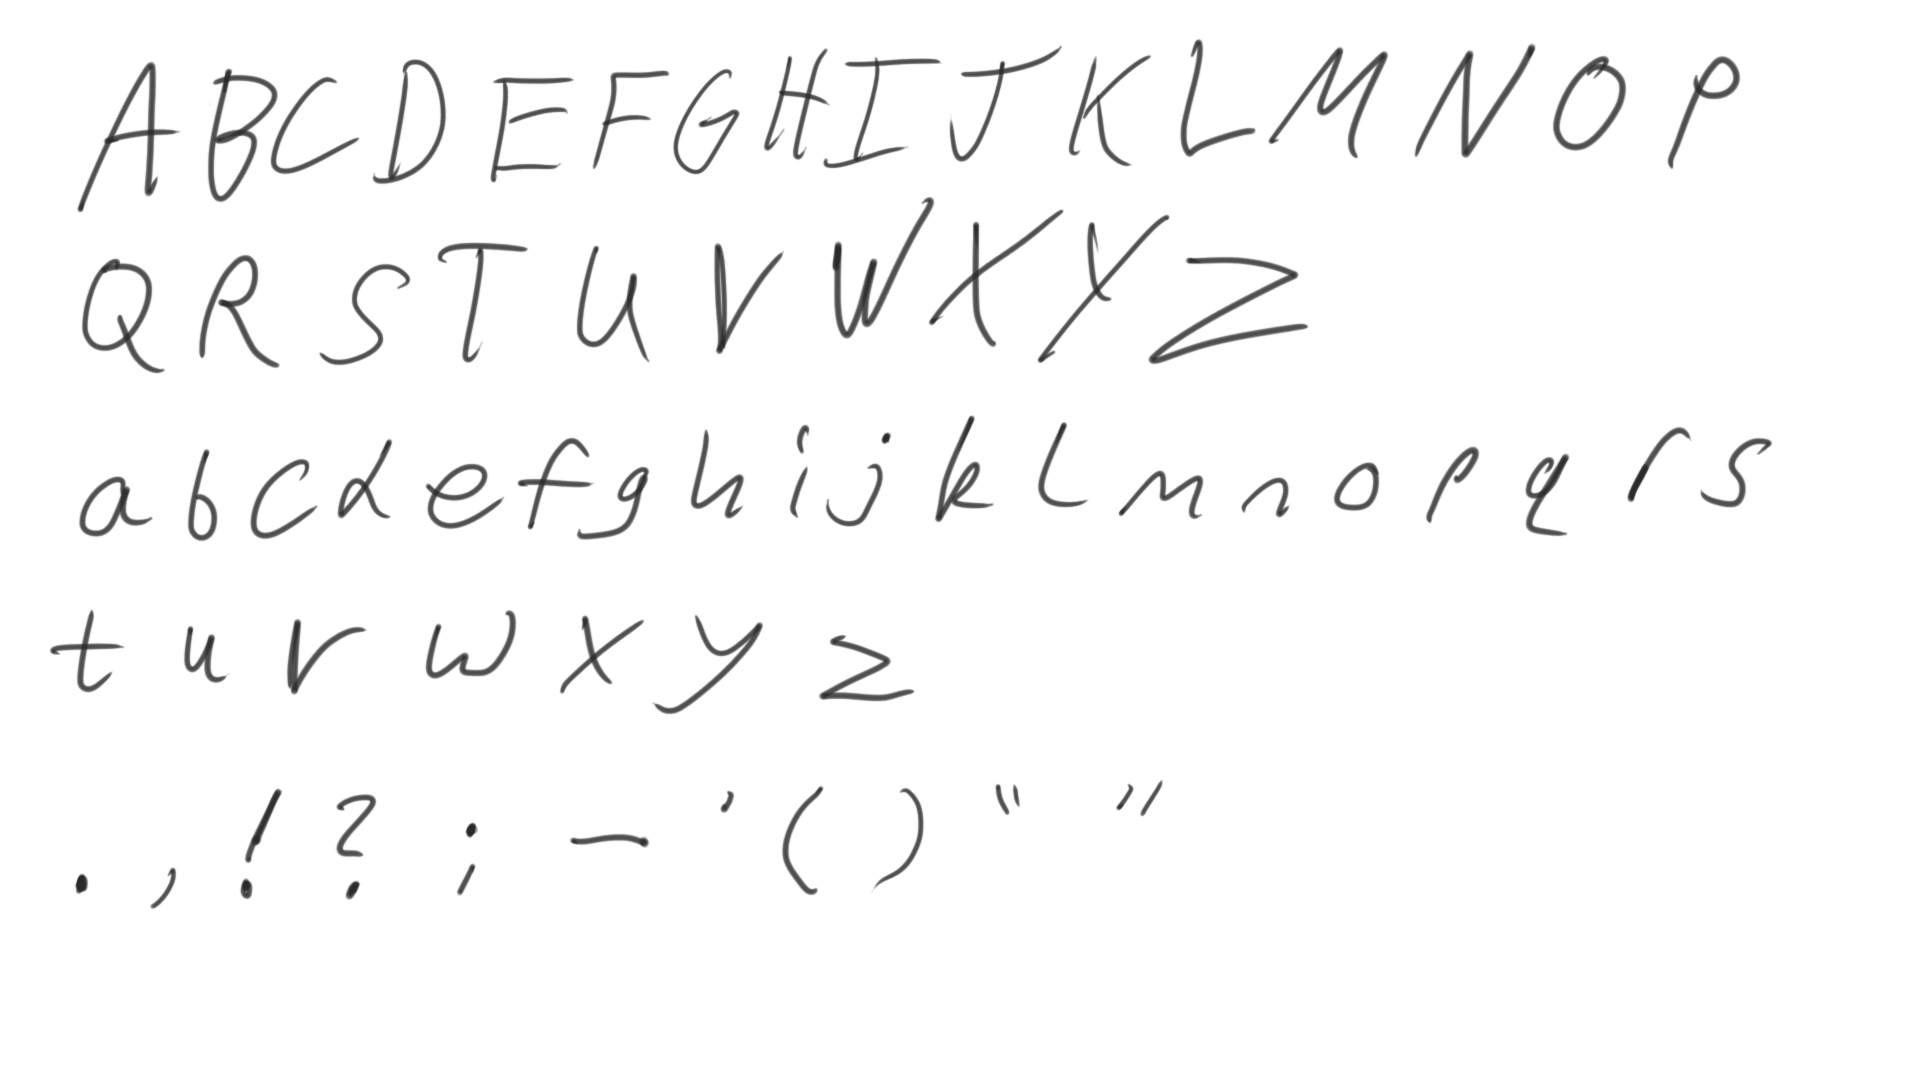 A B C D E F G H I J K L M N O P
Q R S T U V W X Y Z
a b c d e f g h i j k l m n o p q r s
t u v w x y z
. , ! ? ; - ' ( ) “ ”